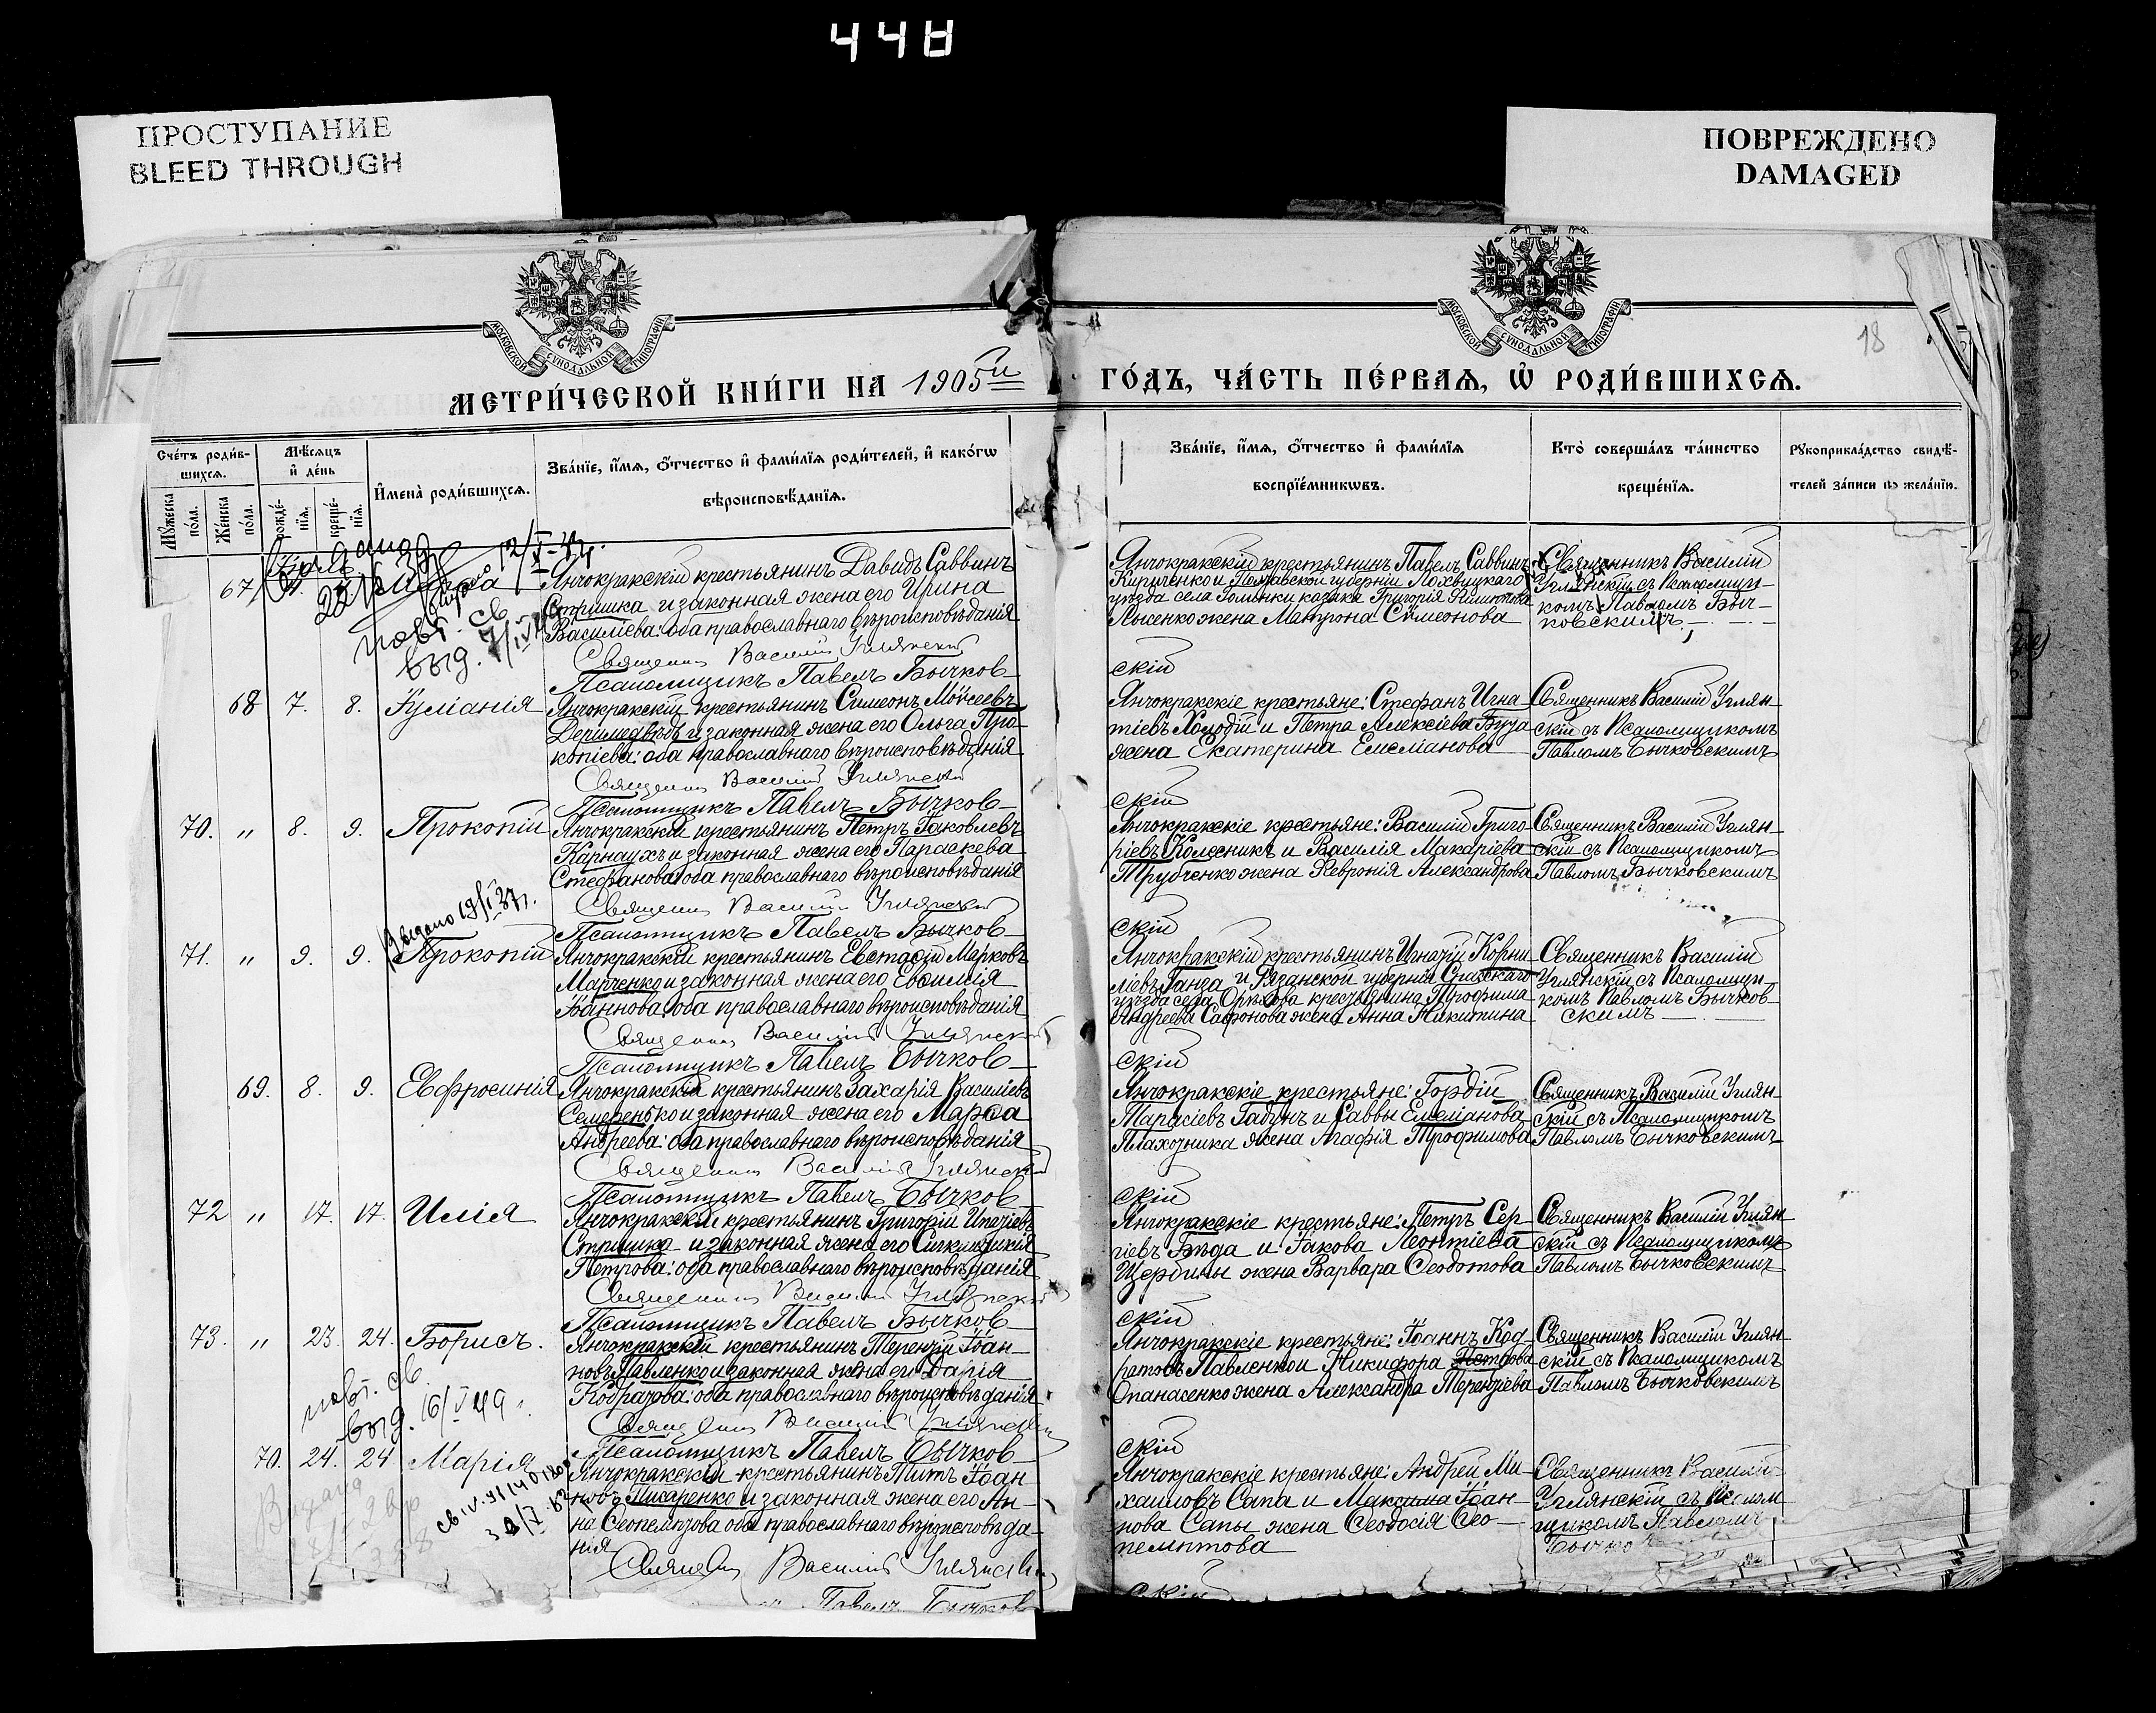 448
ПРОСТУПАНИЕ
BLEED THROUGH
ПОВРЕЖДЕНО
DAMAGED
МОСКОВСКОЙ СѴНОДАЛЬНОЙ ТИПОГРАФІИ
МОСКОВСКОЙ СѴНОДАЛЬНОЙ ТИПОГРАФІИ
18
МЕТРИ́ЧЕСКОЙ КНИ́ГИ НА 1905й ГО́ДЪ, ЧА́СТЬ ПЕ́РВАѦ, Ѡ҆ РОДИ́ВШИХСѦ.
Сче́тъ роди́в-
шихсѧ.
Мꙋжеска по́ла.
Же́нска по́ла.
Мѣ́сѧцъ
и҆ де́нь
рожде́-
нїѧ.
креще́-
нїѧ.
И҆мена̀ роди́вшихсѧ.
Зва́нїе, и҆́мѧ, ѻ҆́тчество и҆ фами́лїѧ роди́телей, и҆ како́гѡ
вѣроисповѣ́данїѧ.
Зва́нїе, и҆́мѧ, ѻ҆́тчество и҆ фами́лїѧ
воспрїе́мникѡвъ.
Кто̀ соверша́лъ та́инство
креще́нїѧ.
Рꙋкоприкла́дство свидѣ́-
телей за́писи по жела́нїю.
67
повт. св.
выд. 7/IV 49
Янчокракскій крестьянинъ Давидъ Саввинъ
Стришка и законная жена его Ирина
Василіева: оба православнаго вѣроисповѣданія
Священникъ Василій Углянскій
Псаломщикъ Павелъ Бычков-
Янчокракскій крестьянинъ Павелъ Саввинъ
Кириченко и Полтавской губерніи Лохвицкаго
уѣзда села Гомынки козака Григорія
Лысенко жена Матрона Сѵмеонова
скій
Священникъ Василій
Углянскій съ Псаломщи-
комъ Павломъ Быч-
ковскимъ
68 7. 8. Іуліанія
Янчокракскій крестьянинъ Симеонъ Моѵсеевъ
Деримедвѣдь и законная жена его Ольга Про-
копіева: оба православнаго вѣроисповѣданія
Священникъ Василій Углянскій
Псаломщикъ Павелъ Бычков-
Янчокракскіе крестьяне: Стефанъ Игна-
тіевъ Холодій и Петра Алексіева Буза
жена Екатерина Емеліанова
скій
Священникъ Василій Углян-
скій съ Псаломщикомъ
Павломъ Бычковскимъ
70. " 8. 9. Прокопій
Янчокракскій крестьянинъ Петръ Іаковлевъ
Карнаухъ и законная жена его Параскева
Стефанова: оба православнаго вѣроисповѣданія
Священникъ Василій Углянскій
Псаломщикъ Павелъ Бычков-
Янчокракскіе крестьяне: Василій Григо-
ріевъ Колесникъ и Василія Макаріева
Трубченко жена Февронія Александрова
скій
Священникъ Василій Углян-
скій съ Псаломщикомъ
Павломъ Бычковскимъ
Выдано 19/I 37г.
71. " 9. 9. Прокопій
Янчокракскій крестьянинъ Евстафій Марковъ
Марченко и законная жена его Евѳимія
Іоаннова: оба православнаго вѣроисповѣданія
Священникъ Василій Углянскій
Псаломщикъ Павелъ Бычков-
Янчокракскій крестьянинъ Игнатій Корни-
ліевъ Ганза и Рязанской губерніи Спасскаго
уѣзда села Орѣхова крестьянина Трофима
Андреева Сафонова жена Анна Никитина
скій
Священникъ Василій
Углянскій съ Псаломщи-
комъ Павломъ Бычков-
скимъ
69. 8. 9. Евфросинія
Янчокракскій крестьянинъ Захарія Василіевъ
Семеренько и законная жена его Марѳа
Андреева: оба православнаго вѣроисповѣданія
Священникъ Василій Углянскій
Псаломщикъ Павелъ Бычков
Янчокракскіе крестьяне: Гордій
Тарасіевъ Габунъ и Саввы Емеліанова
Плахотника жена Агафія Трофимова
скій
Священникъ Василій Углян-
скій съ Псаломщикомъ
Павломъ Бычковскимъ
72 " 17. 17. Илія
Янчокракскій крестьянинъ Григорій Ипатіевъ
Стришка и законная жена его Сигклитикія
Петрова: оба православнаго вѣроисповѣданія
Священникъ Василій Углянскій
Псаломщикъ Павелъ Бычков-
Янчокракскіе крестьяне: Петръ Сер-
гіевъ Бѣда и Іакова Леонтіева
Щербины жена Варвара Ѳеодотова
скій
Священникъ Василій Углян-
скій съ Псаломщикомъ
Павломъ Бычковскимъ
73. " 23. 24. Борисъ.
повт. св.
выд. 16/V 49
Янчокракскій крестьянинъ Терентій Іоан-
новъ Павленко и законная жена его Дарія
Кодратова: оба православнаго вѣроисповѣданія
Священникъ Василій Углянскій
Псаломщикъ Павелъ Бычков-
Янчокракскіе крестьяне: Іоаннъ Код-
ратовъ Павленко и Никифора Петрова
Опанасенко жена Александра Терентіева
скій
Священникъ Василій Углян-
скій съ Псаломщикомъ
Павломъ Бычковскимъ
70. 24. 24 Марія
Янчокракскій крестьянинъ Титъ Іоан-
новъ Писаренко и законная жена его Ан-
на Ѳеопемптова: оба православнаго вѣроисповѣда-
нія
Священникъ Василій Углянскій
Павелъ Бычков
Янчокракскіе крестьяне: Андрей Ми-
хаиловъ Сапа и Максима Іоан-
нова Сапы жена Ѳеодосія Ѳео-
пемптова
скій
Священникъ Василій
Углянскій съ Псалом-
щикомъ Павломъ